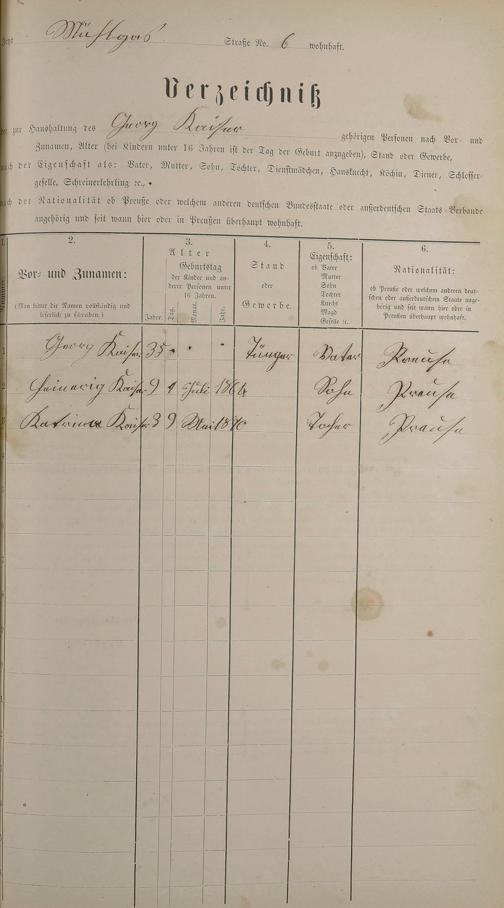 Mühlgas Straße No. 6 wohnhaft.
Verzeichniß
der zur Haushaltung des Georg Kaiser gehörigen Personen nach Vor- und
Zunamen, Alter (bei Kindern unter 16 Jahren ist der Tag der Geburt anzugeben), Stand oder Gewerbe,
nach der Eigenschaft als: Vater, Mutter, Sohn, Tochter, Dienstmädchen, Hausknecht, Köchin, Diener, Schlosser-
geselle, Schreinerlehrling ꝛc.,
nach der Nationalität ob Preuße oder welchem anderen deutschen Bundesstaate oder außerdeutschen Staats-Verbande
angehörig und seit wann hier oder in Preußen überhaupt wohnhaft.
1. 2. 3. 4. 5. 6.
Vor- und Zunamen:
(Man bittet die Namen vollständig und
leserlich zu schreiben.)
Alter
Geburtstag
der Kinder und an-
derer Personen unter
16 Jahren.
Jahre. Tag. Monat. Jahr.
Stand
oder
Gewerbe.
Eigenschaft:
ob Vater
Mutter
Sohn
Tochter
Knecht
Magd
Geselle ꝛc.
Nationalität:
ob Preuße oder welchem anderen deut-
schen oder außerdeutschen Staate ange-
hörig und seit wann hier oder in
Preußen überhaupt wohnhaft.
1 Georg Kaiser 35 " " " Vater Preuse
2 Heinerig Kaiser 9 4 Juli 1864 Sohn Preuse
3 Katrina Kaiser 3 9 Mai 1870 Tocher Preuse